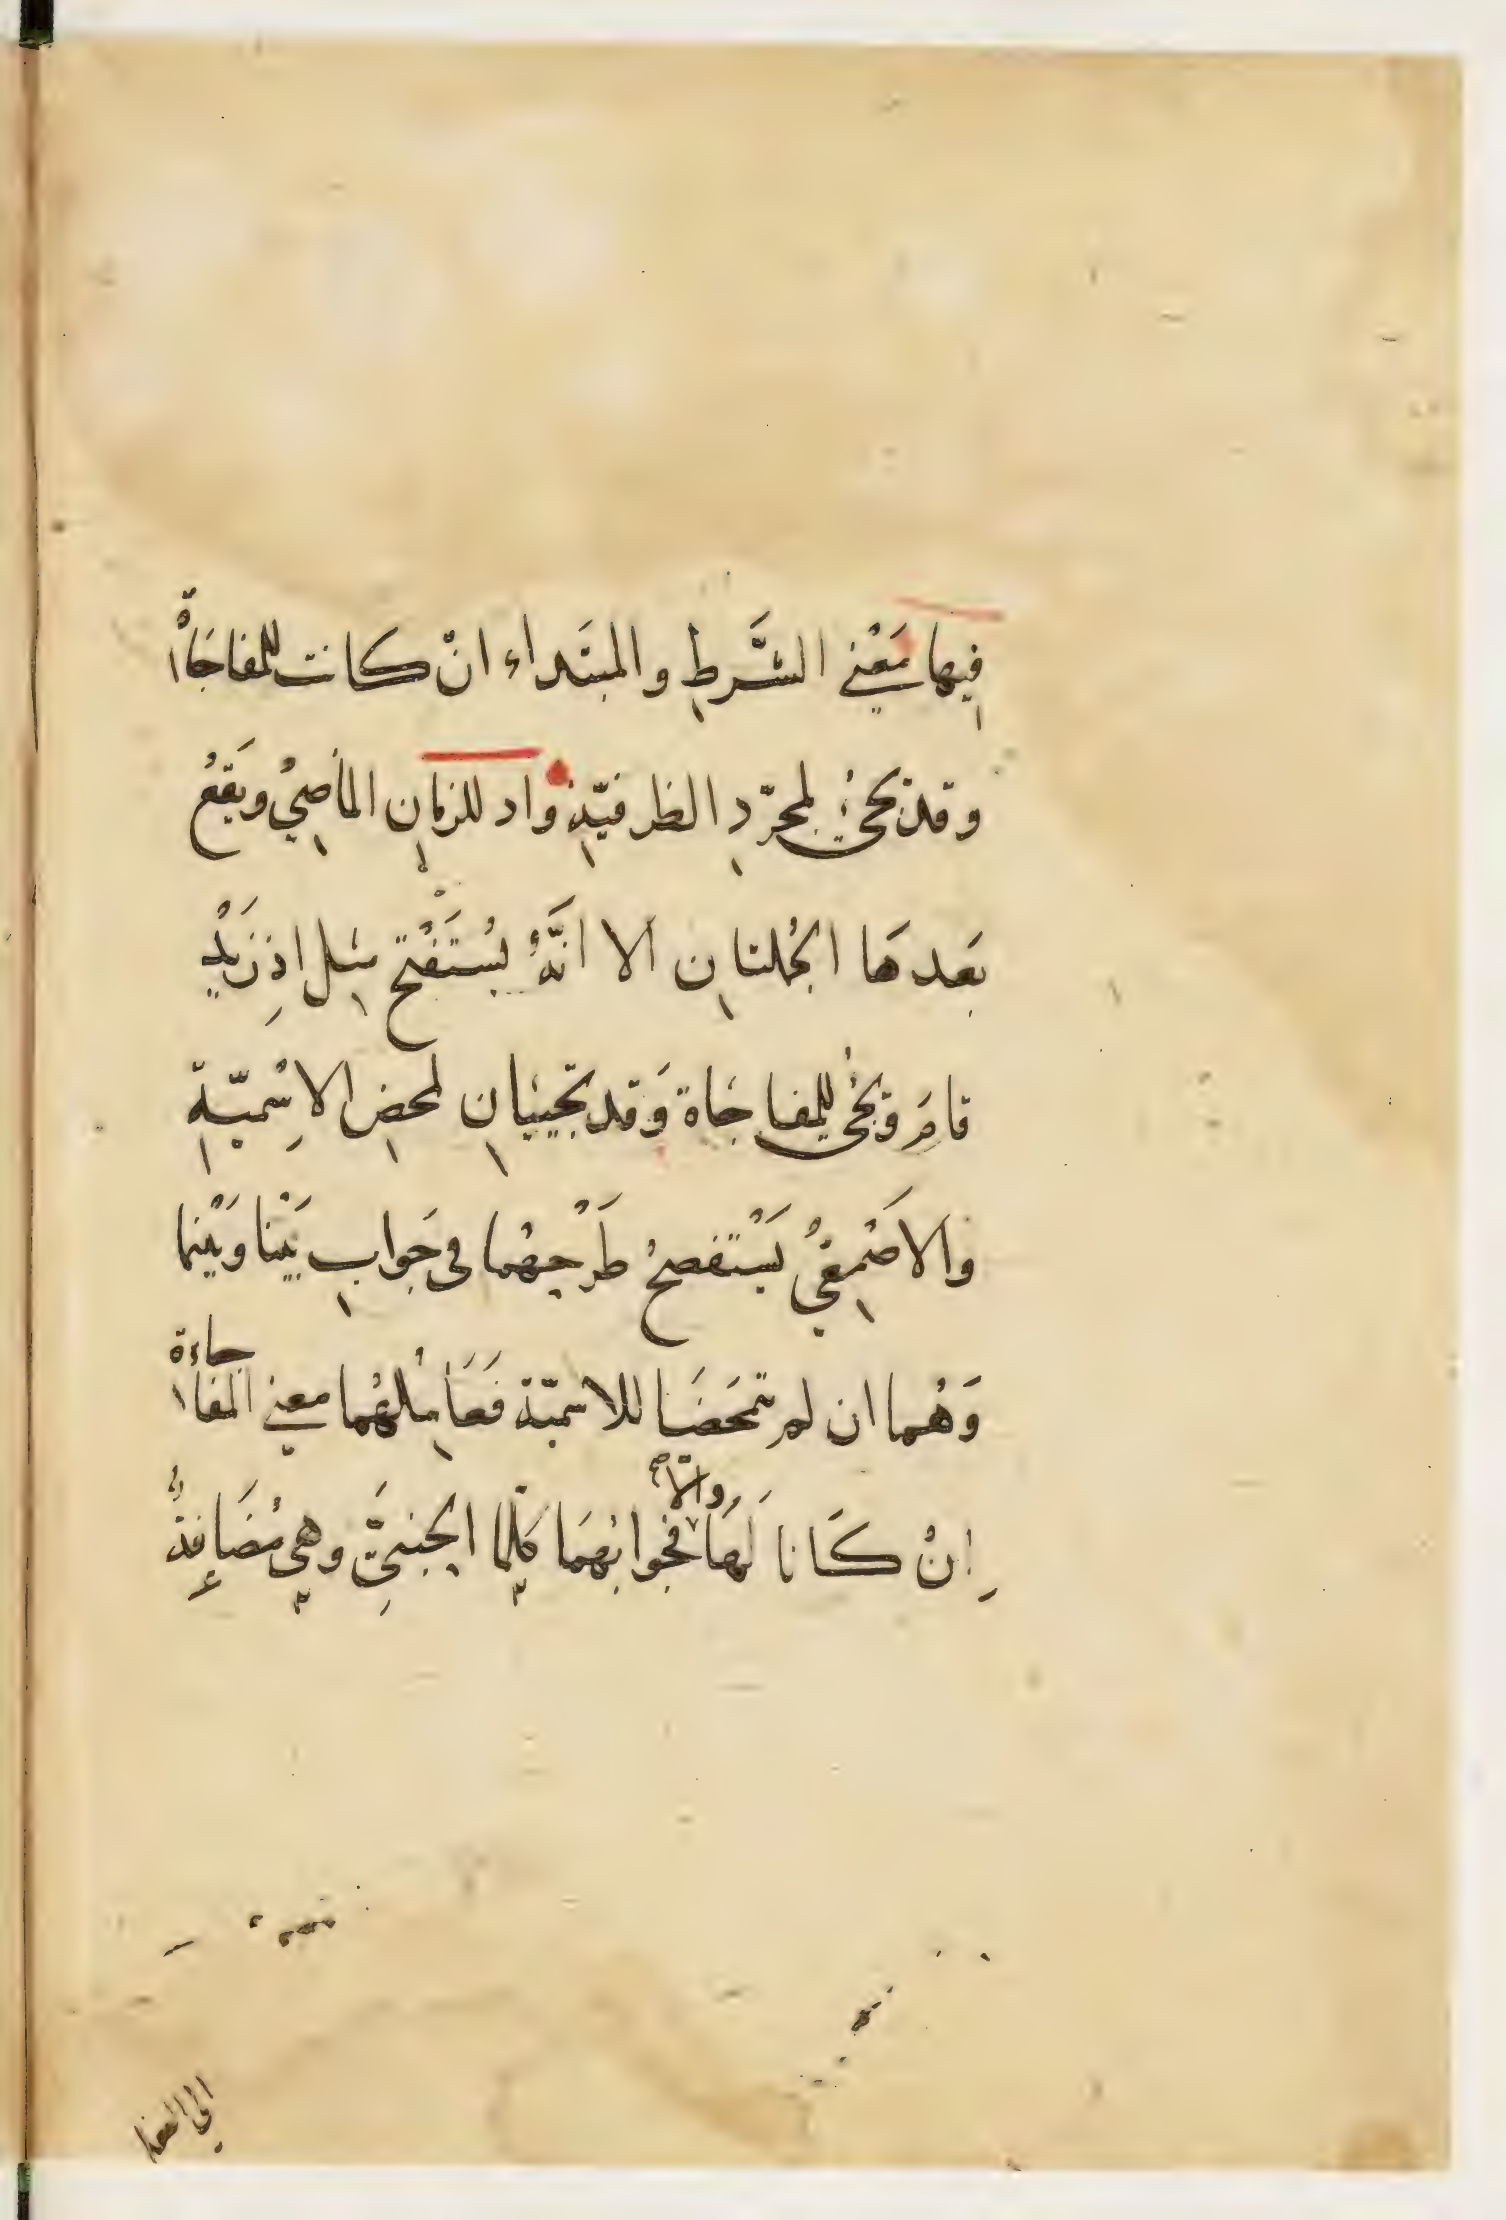 فيها مَعْنى الشَّرطِ والمبتَداء انْ كانت للمفاجَاْة
وقد تجئُ لمجرّدِ الظرفيّةِ واذ للزمانِ الماضِيْ ويَقَعُ
بَعدهَا الجُملتانِ الا انَّهُ يُسْتَقْبَح مثل اذ زَيْدٌ
قامَ وتجئُ للمفاجَاة وَقد تجيئانِ لمحضِ الاِسْميّةِ
والاَصْمِعَيُّ يَسْتفصحُ طَرْحَهُما في جَوابِ بَيْنا وَبَيْنما
وَهُما ان لم تتمحَضَا للاسميّة فَعَامِلُهُما معنى المفاجاءة
اِنْ كَانا لَهَا وَالاّ فجوابُهمَا كَلِمَا الجنبيَّ وهي مُضَافةٌ
الى الفضا